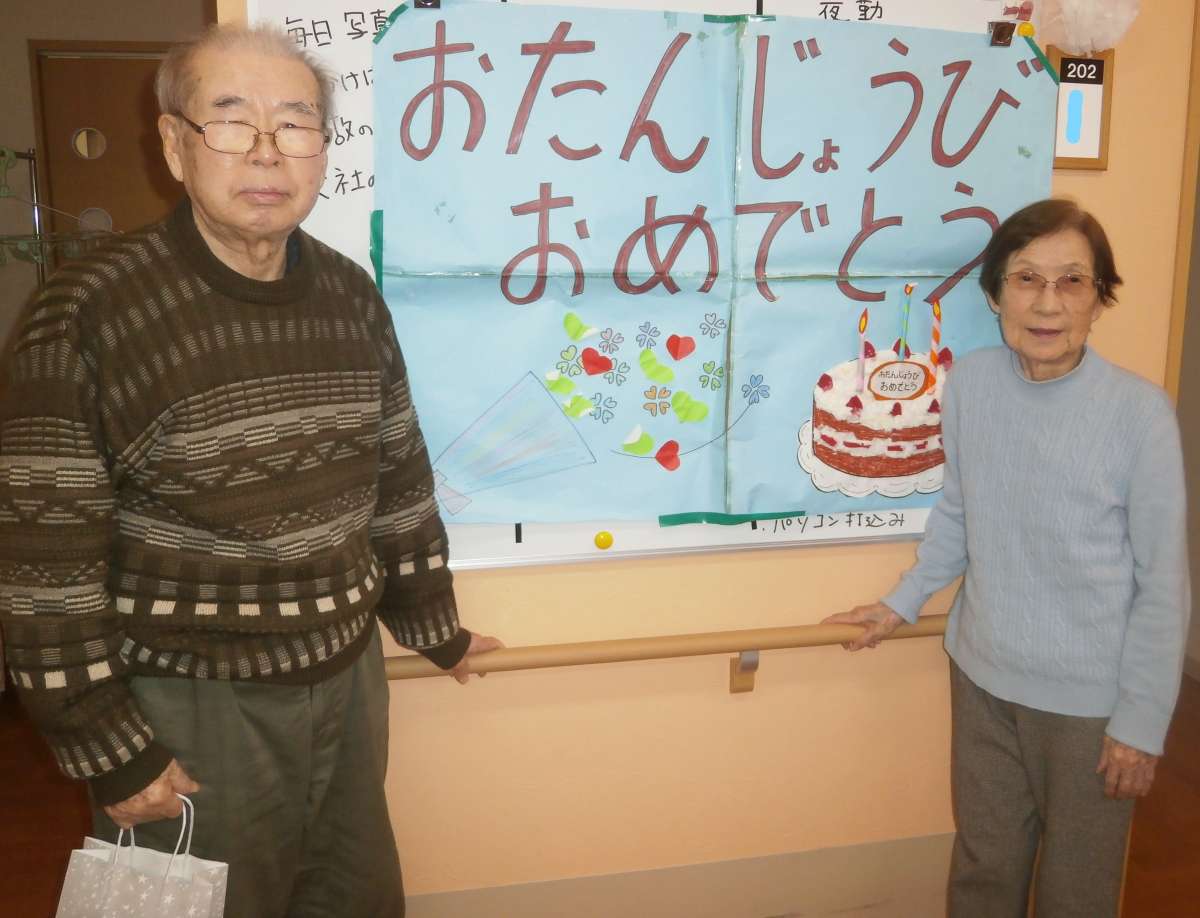 毎日 写真
夜勤
おたんじょうび
おめでとう
202
おたんじょうび
おめでとう
パソコン打込み